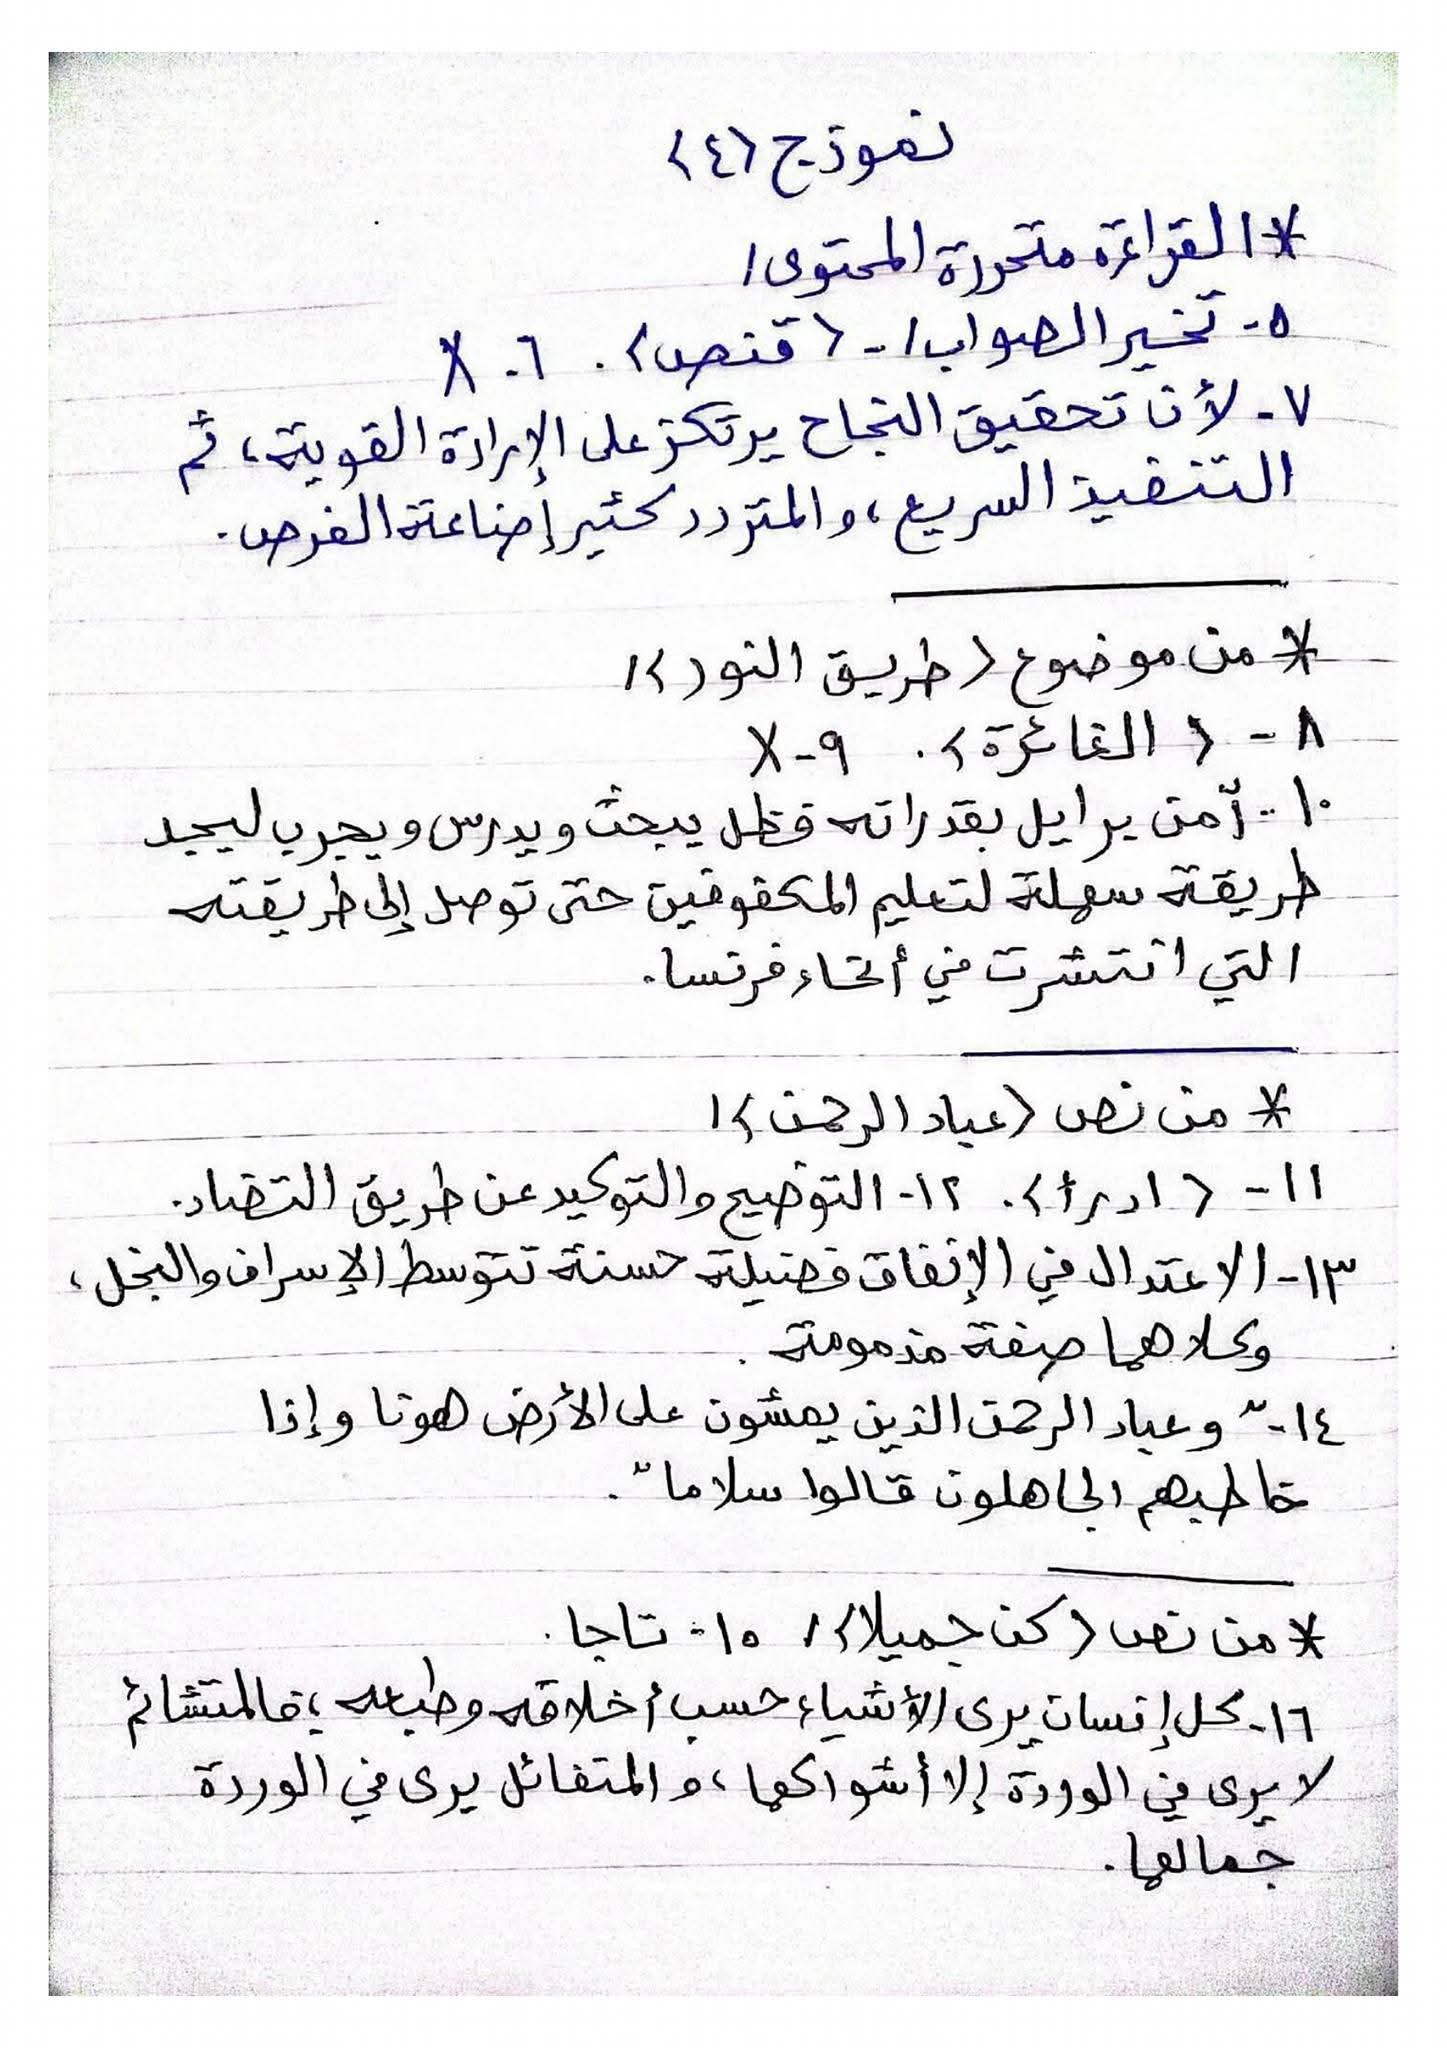 نموذج (٤)
* القراءة متحررة المحتوى/
٥- تخير الصواب/ - (قنص). ٦- X
٧- لأن تحقيق النجاح يرتكز على الإرادة القوية، ثم
التنفيذ السريع، والمتردد كثير إضاعة الفرص.
* من موضوع (طريق النور)/
٨ - (الغائرة). ٩- X
١٠- آمن برايل بقدراته فظل يبحث ويدرس ويجرب ليجد
طريقة سهلة لتعليم المكفوفين حتى توصل إلى طريقته
التي انتشرت في أنحاء فرنسا.
* من نص (عباد الرحمن)/
١١ - (ادرأ). ١٢- التوضيح والتوكيد عن طريق التضاد.
١٣- الاعتدال في الإنفاق فضيلة حسنة تتوسط الإسراف والبخل،
وكلاهما صفة مذمومة.
١٤- " وعباد الرحمن الذين يمشون على الأرض هونا وإذا
خاطبهم الجاهلون قالوا سلاما ".
* من نص (كن جميلا)/ ١٥- تاجا.
١٦- كل إنسان يرى الأشياء حسب أخلاقه وطبعه؛ فالمتشائم
لا يرى في الوردة إلا أشواكها، والمتفائل يرى في الوردة
جمالها.